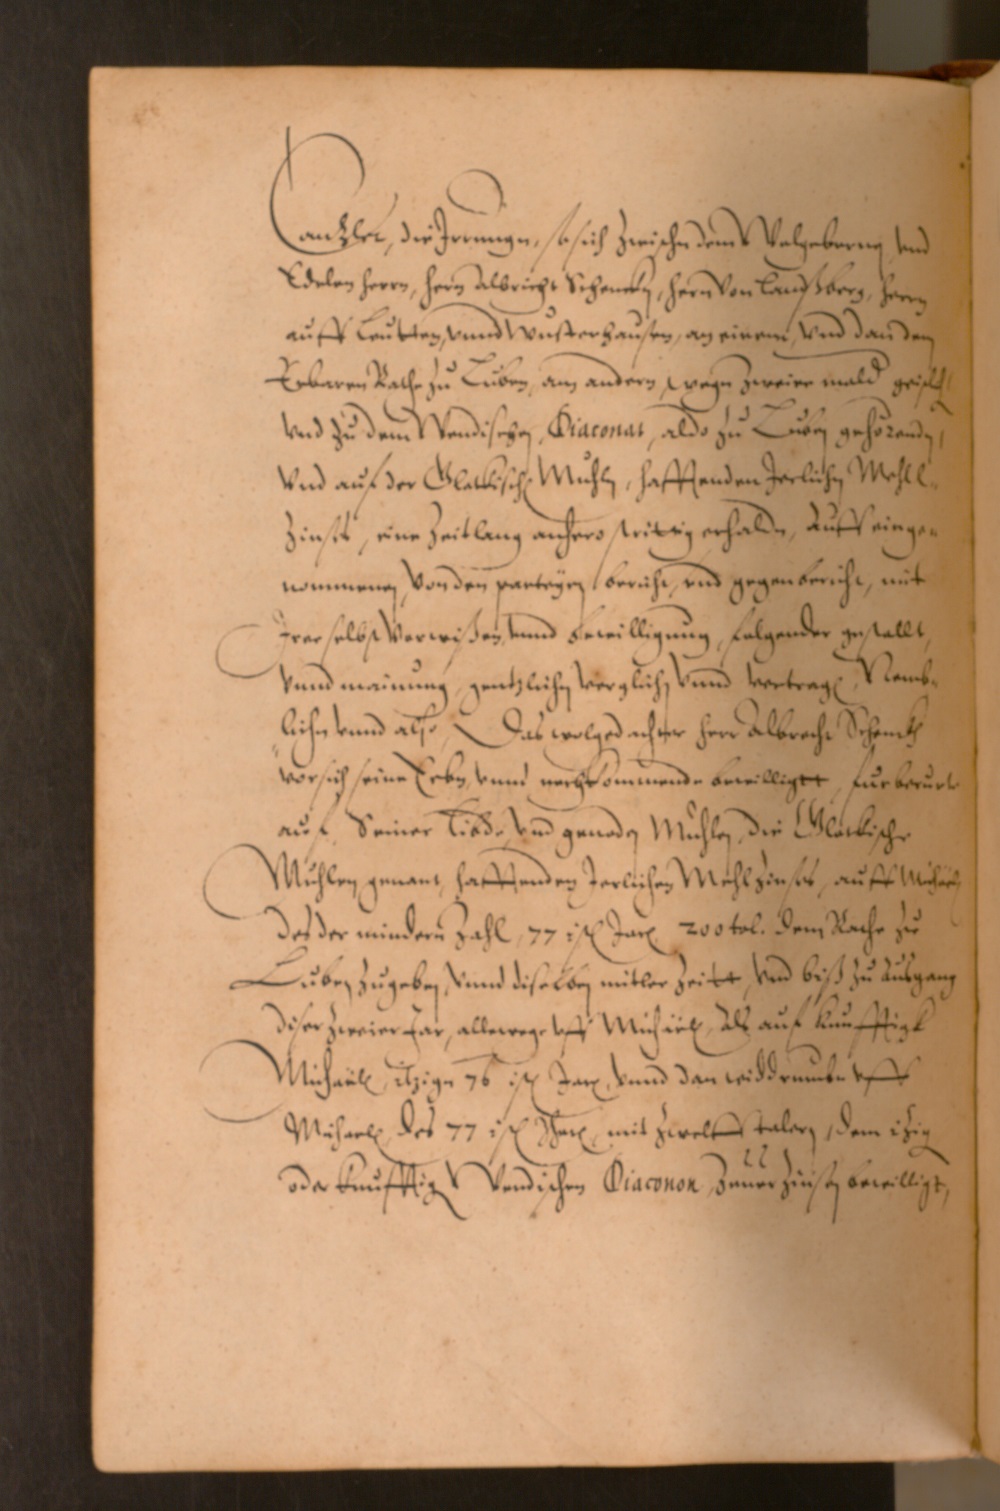 Cantzler, die Irrungen, so sich zwischn dem Wolgebornen, vnd
Edelen herrn, hern Albricht Schencken, hern von Landßberg, herrn
auff Leutten, vnnd Wusterhausen, an einem, vnd dan dem
Erbaren Rathe zu Luben, am andern, wegen zweier mald
vnd zu dem Wendischen Diaconat, aldo zu Luben gehorenden,
vnd auf der Glattkischen Muhln, hafftenden Jerlichen Mehll
zinses, eine Zeitlang anhero strittig erhalden, Auff einge-
nommenen, von den parteyen bericht, vnd gegenbericht, mit
Irer selbst Vorwissen, vnnd bewilligung, folgender gestallt,
vnnd mainung, gentzlichen verglichen vnnd vertragen, Nemb-
lichen vnnd also, Das wolgedachter herr Albrecht Schenck
vor sich seine Erben, vnnd nachkommende bewilligtt, fur berurte
auf Seiner vnd genaden Muhlen, die Glattkische
Muhlen genant, hafftenden Jerlichen Mehlzinses, auff Michaelis
des der mindern Zahl, 77 isten Jares 200 tal. dem Rathe zu
Luben zugeben, vnnd diselben mitler Zeitt, vnd biß zu Ausgang
diser zweier Jar, allewege vff Michaelis, als auf kunfftigk
Michaelis, itzigen 76 isten Jares, vnnd dan widdrumb vff
Michaelis, des 77 isten Jhares, mit zwelff talern, dem itzigen
oder kunfftigen Wendischen Diaconon, zuuorzinsen bewilligt,